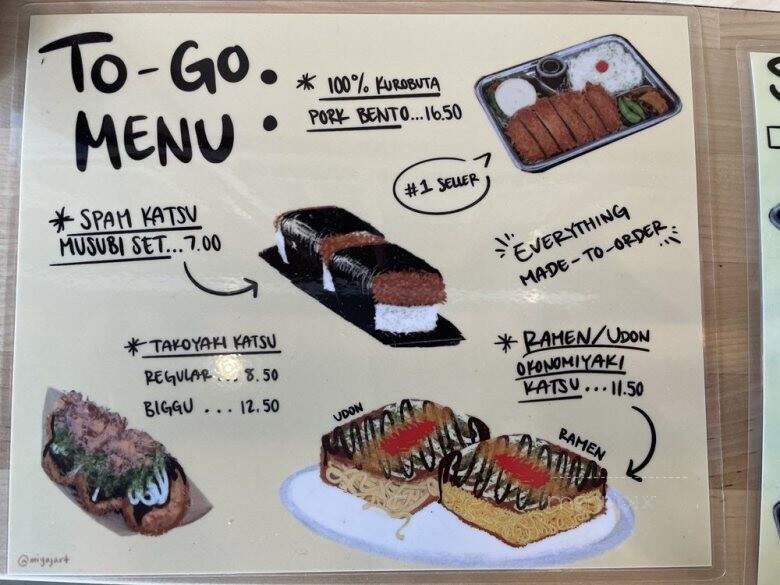 TO-GO
MENU :
* 100% KUROBUTA
PORK BENTO...16.50
#1 SELLER
* SPAM KATSU
MUSUBI SET...7.00
EVERYTHING
MADE-TO-ORDER
* TAKOYAKI KATSU
REGULAR... 8.50
BIGGU ... 12.50
* RAMEN/UDON
OKONOMIYAKI
KATSU... 11.50
UDON
RAMEN
@miyojart